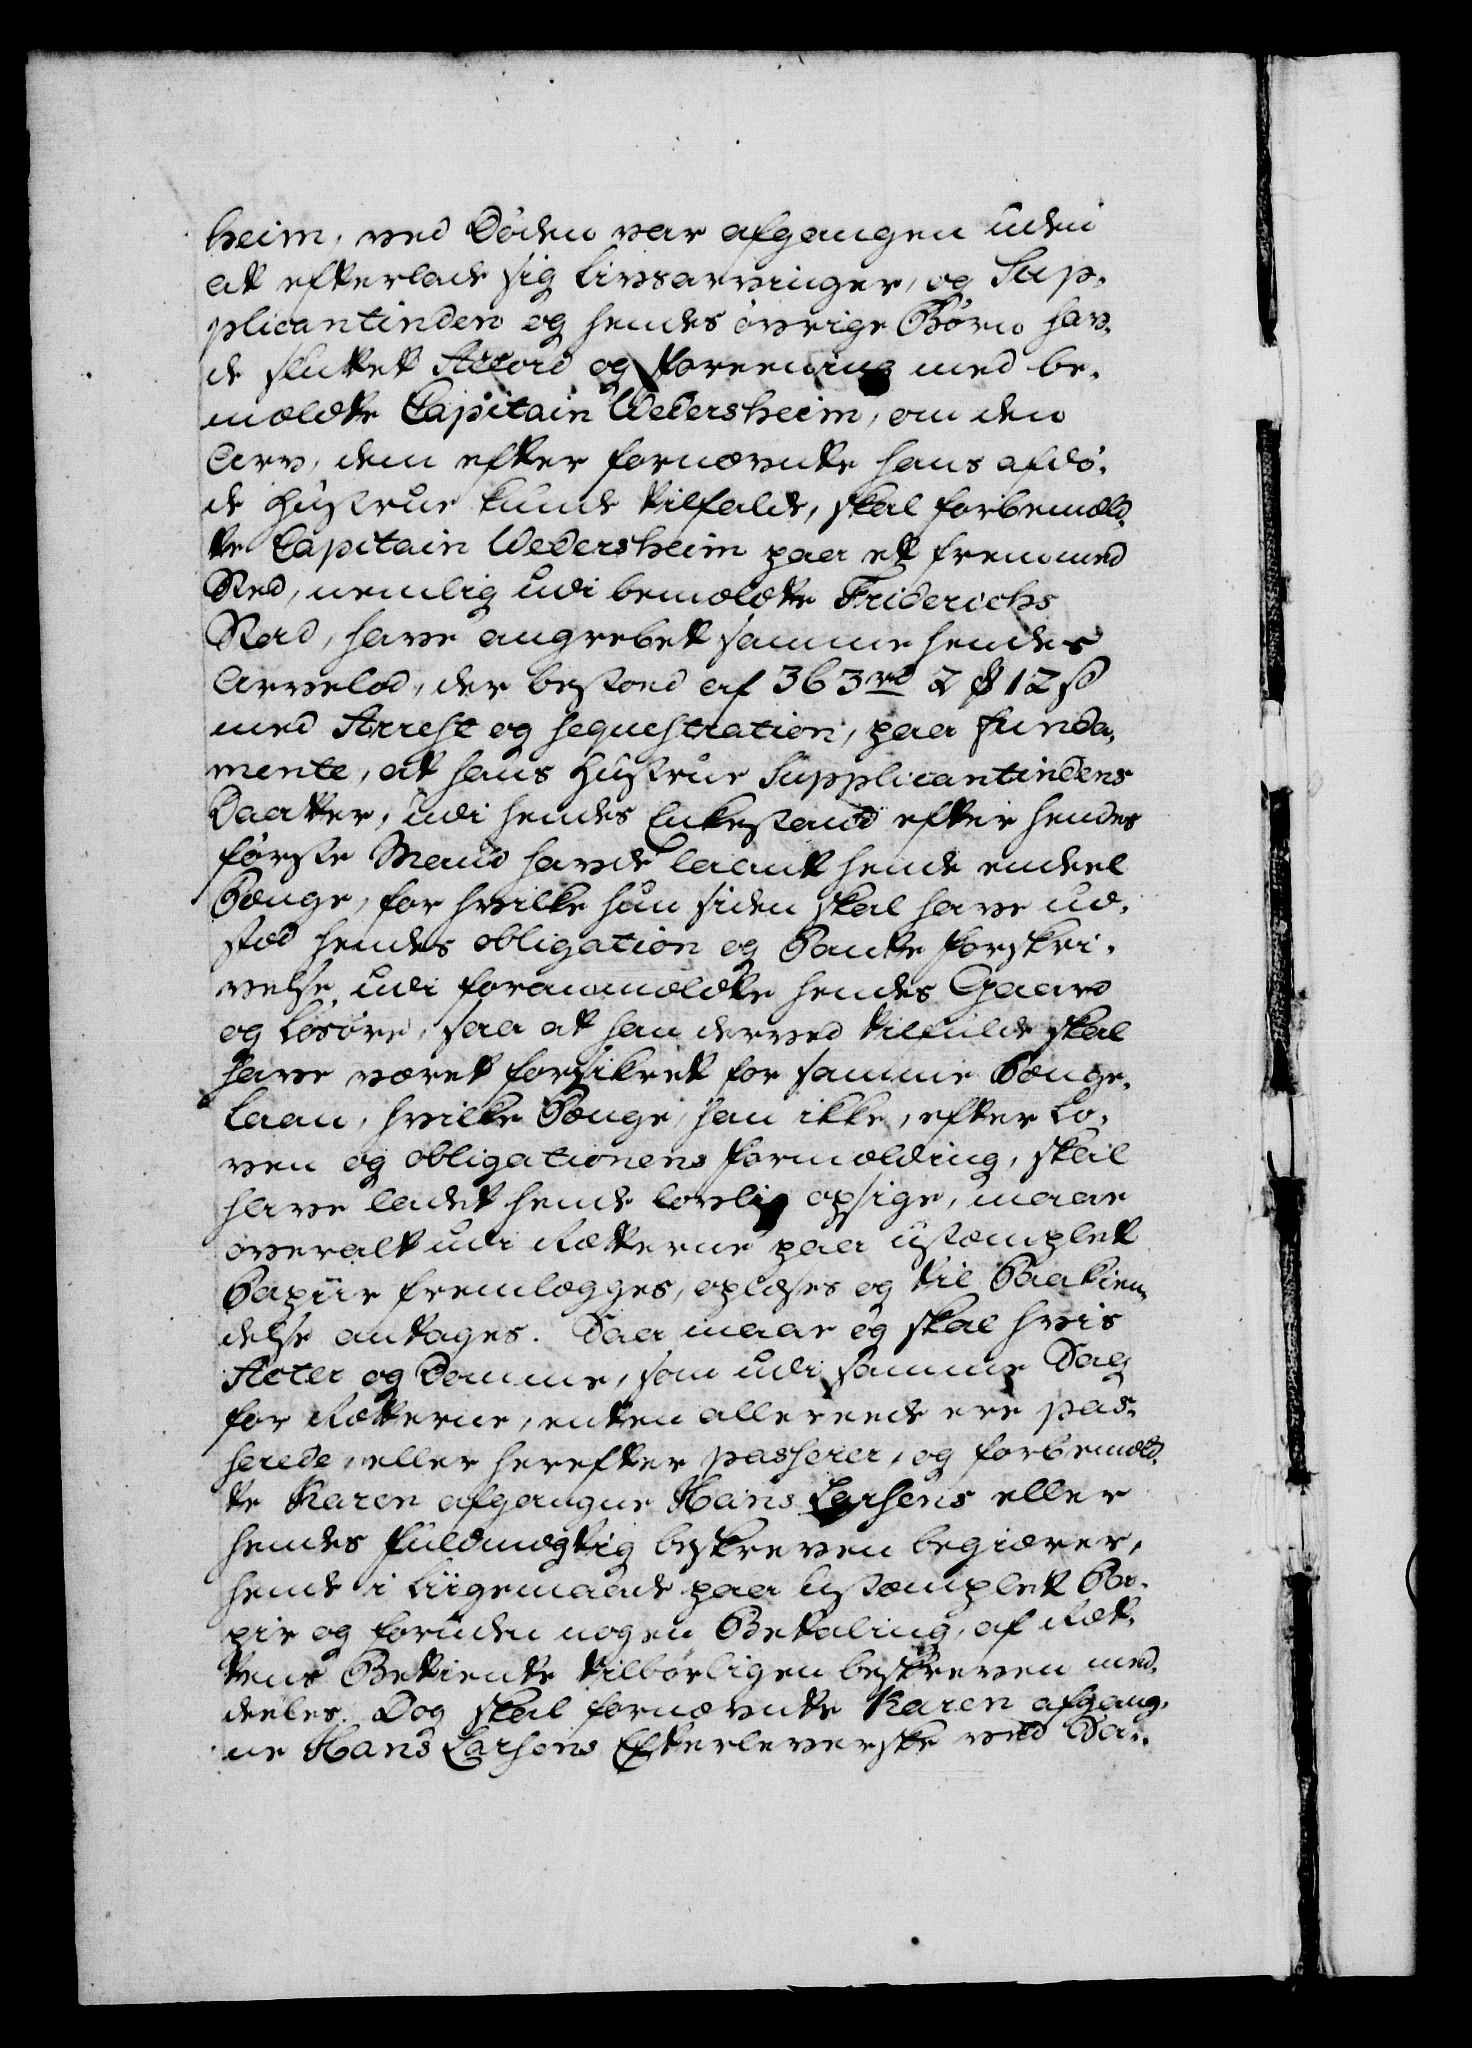 heim, ved Døden var afgangen uden
at efterlade sig Livsarvinger, og Sup-
plicantinden og hendes øvrige Børn hav-
de sluttet Accord og Foreening med be-
mældte Capitain Wedersheim, om den
Arv, dem efter fornævnte hans afdø-
de Hustrue kunde tilfalde, skal forbemæld-
te Capitain Wedersheim paa et fremmed
Sted, nemlig udi bemældte Friderichs
Stad, have angrebet samme hendes
Arvelod, der bestoed af 363 rd 2 ₰ 12 s
med Arrest og sequestration, paa funda-
mente, at hans Hustrue Supplicantindens
Daatter, udi hendes Enkestand efter hendes
første Mand havde laant hende endeel
Penge, for hvilke hun siden skal have ud-
sted hendes obligation og Pante forskri-
velse udi foranmældte hendes Gaard
og Løsøre, saa at han derved tilfulde skal
have været forsikret for samme Penge-
Laan, hvilke Penge, han ikke, efter Lo-
ven og obligationens formælding, skal
have ladet hende lovlig opsige, maae
overalt udi Retterne paa ustemplet
Papiir fremlægges, oplæses og til Paakien-
delse antages. Saa maae og skal hvis
Acter og Domme, som udi samme Sag
for Retterne, enten allereede ere pas-
serede, eller herefter passerer, og forbemæld-
te Karen afgangne Hans Larsens eller
hendes fuldmægtig beskreven begiærer,
hende i liigemaade paa ustemplet Pa-
pir og foruden nogen Betaling, af Ret-
tens Betiente tilbørligen beskreven med-
deeles. Dog skal fornævnte Karen afgang-
ne Hans Larsens Efterleverske ved Sa-